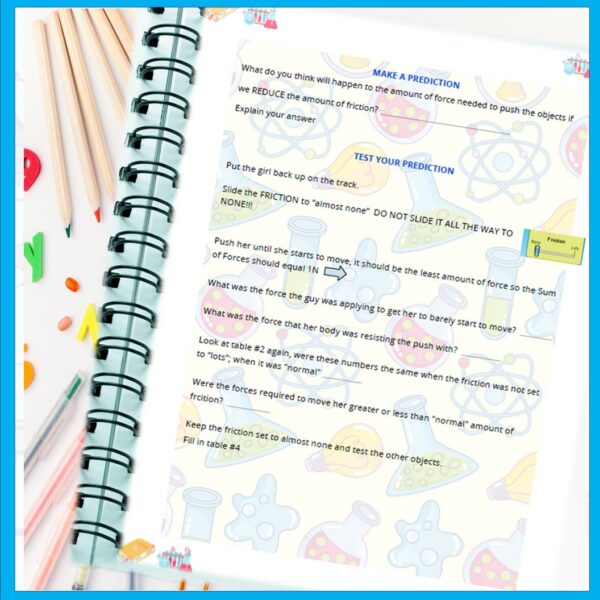 MAKE A PREDICTION
What do you think will happen to the amount of force needed to push the objects if
we REDUCE the amount of friction? ____________________
Explain your answer
TEST YOUR PREDICTION
Put the girl back up on the track.
Slide the FRICTION to "almost none" DO NOT SLIDE IT ALL THE WAY TO
NONE!!!
Friction
None Lots
Push her until she starts to move, it should be the least amount of force so the Sum
of Forces should equal 1N
What was the force the guy was applying to get her to barely start to move? _____
What was the force that her body was resisting the push with? _____
Look at table #2 again, were these numbers the same when the friction was not set
to "lots"; when it was "normal" ______
Were the forces required to move her greater or less than "normal" amount of
frcition? ______
Keep the friction set to almost none and test the other objects.
Fill in table #4